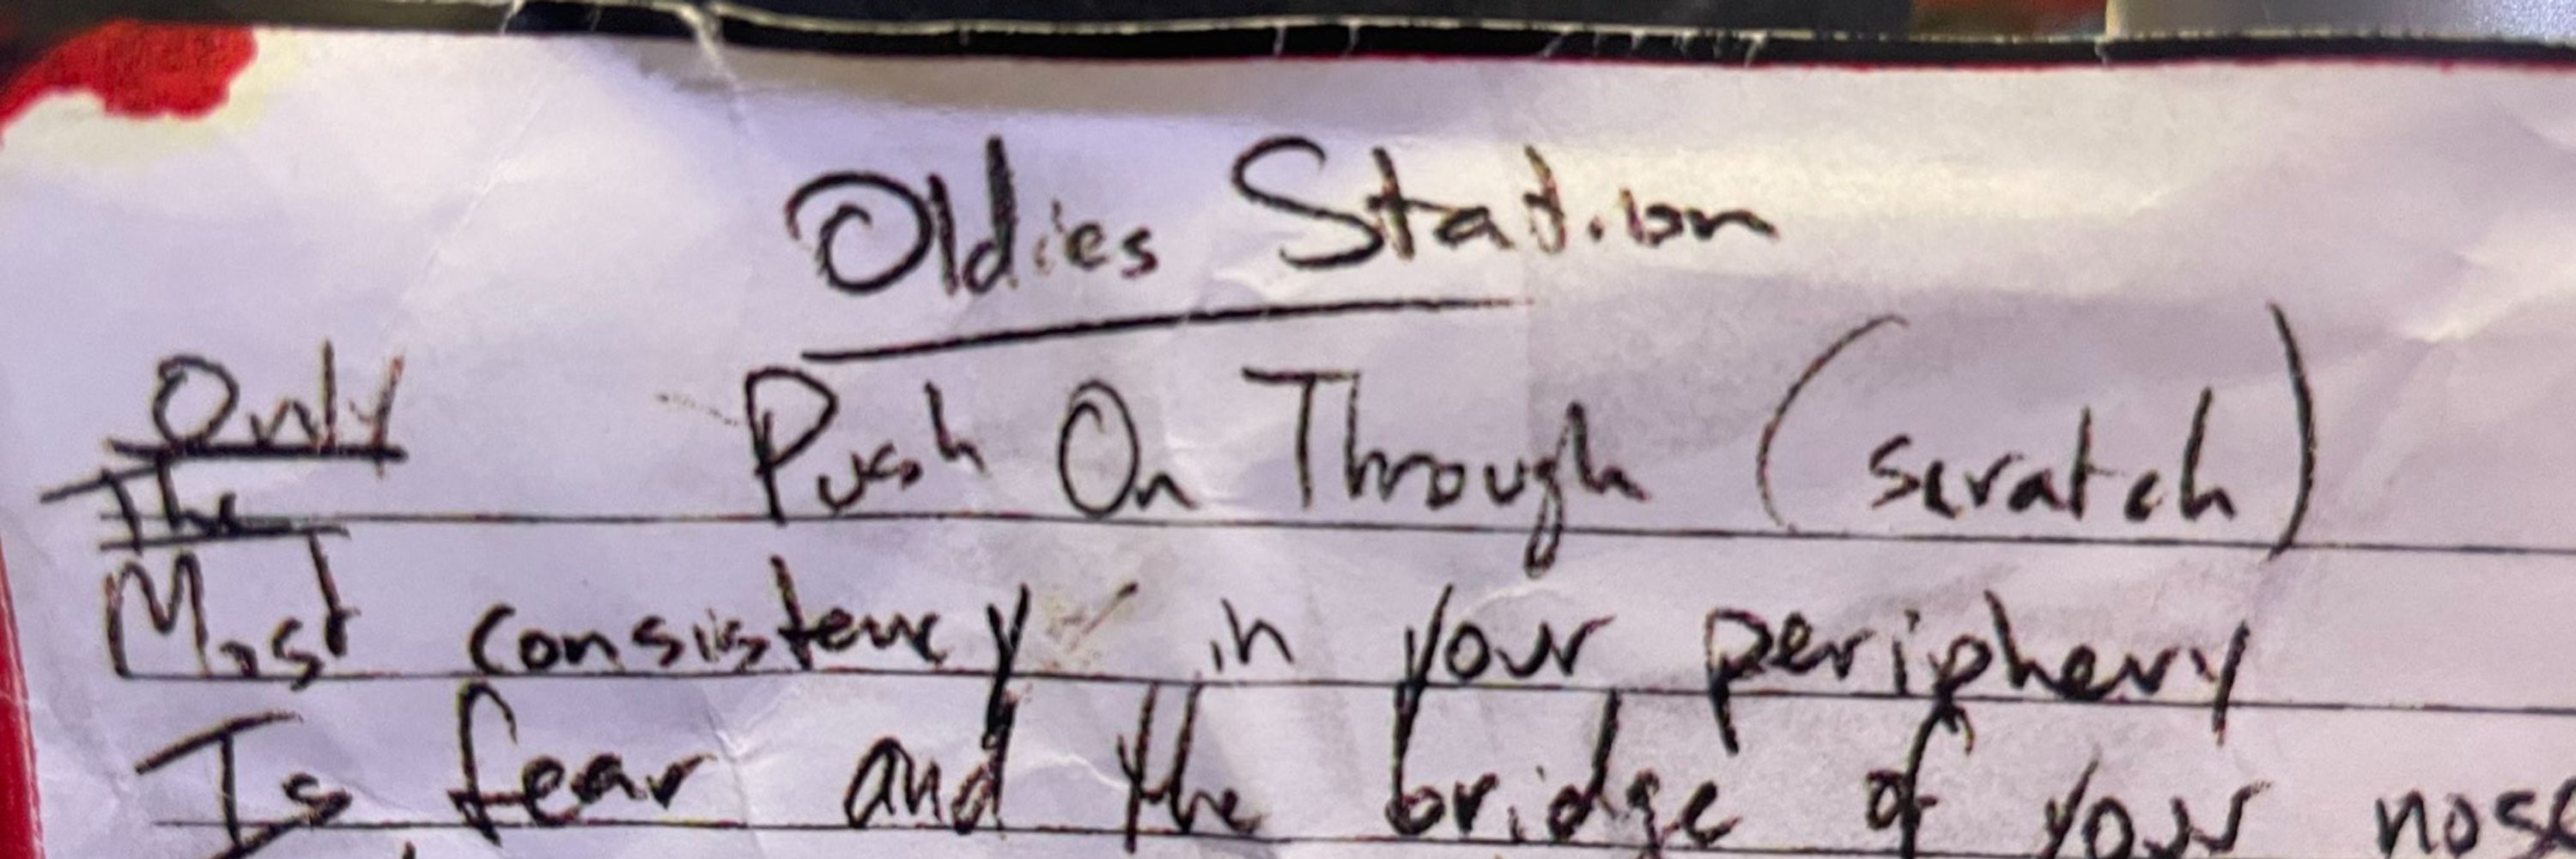 Oldies Station
Only Push On Through (scratch)
The
Most consistency in your periphery
Is fear and the bridge of your nose